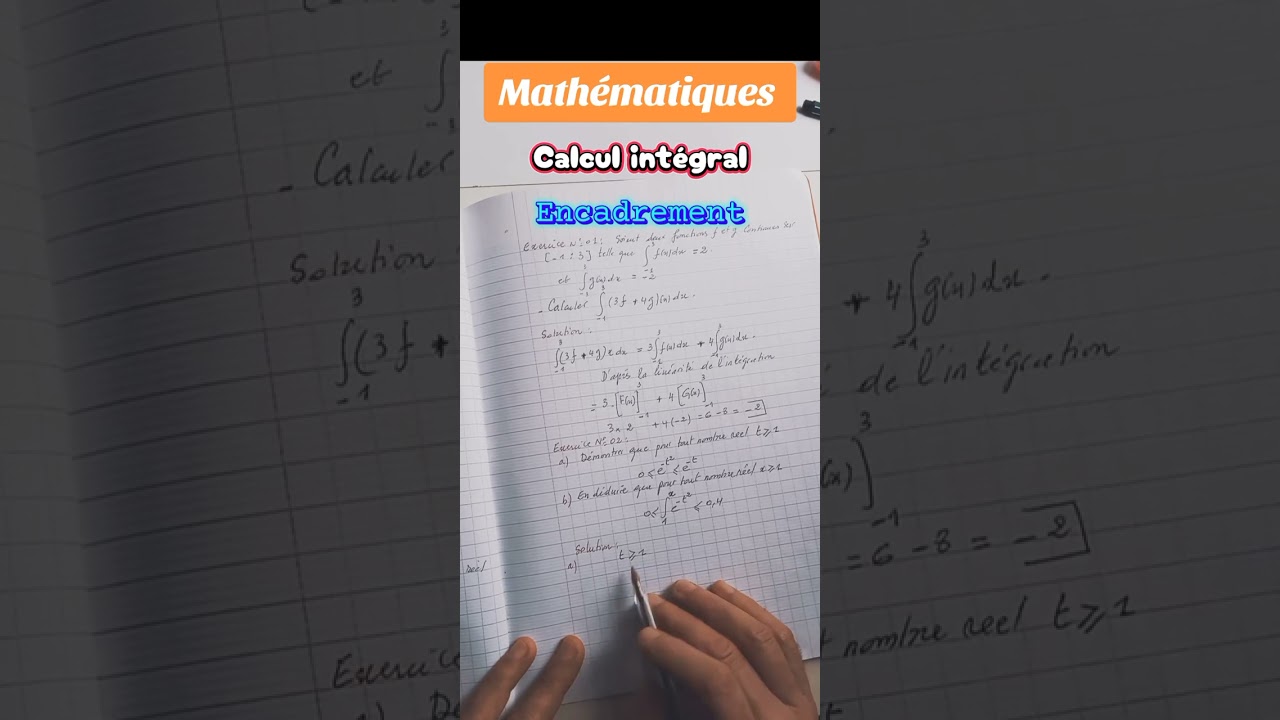 Mathématiques
Calcul intégral
Encadrement
Exercice N°:01: Soient deux fonctions f et g continues sur
[-1 ; 3] telle que ∫₋₁³ f(x)dx = 2
et ∫₋₁³ g(x)dx = -2
- Calculer ∫₋₁³ (3f + 4g)(x)dx.
Solution :
∫₋₁³ (3f + 4g)x dx = 3∫₋₁³ f(x)dx + 4∫₋₁³ g(x)dx.
D'après la linéarité de l'intégration
= 3·[F(x)]₋₁³ + 4[G(x)]₋₁³
3×2 + 4(-2) = 6 - 8 = -2
Exercice N°:02:
a) Démontrer que pour tout nombre réel t ⩾ 1
0 ⩽ e^-t² ⩽ e^-t
b) En déduire que pour tout nombre réel x ⩾ 1
0 ⩽ ∫₁ˣ e^-t² ⩽ 0,4
Solution :
a) t ⩾ 1